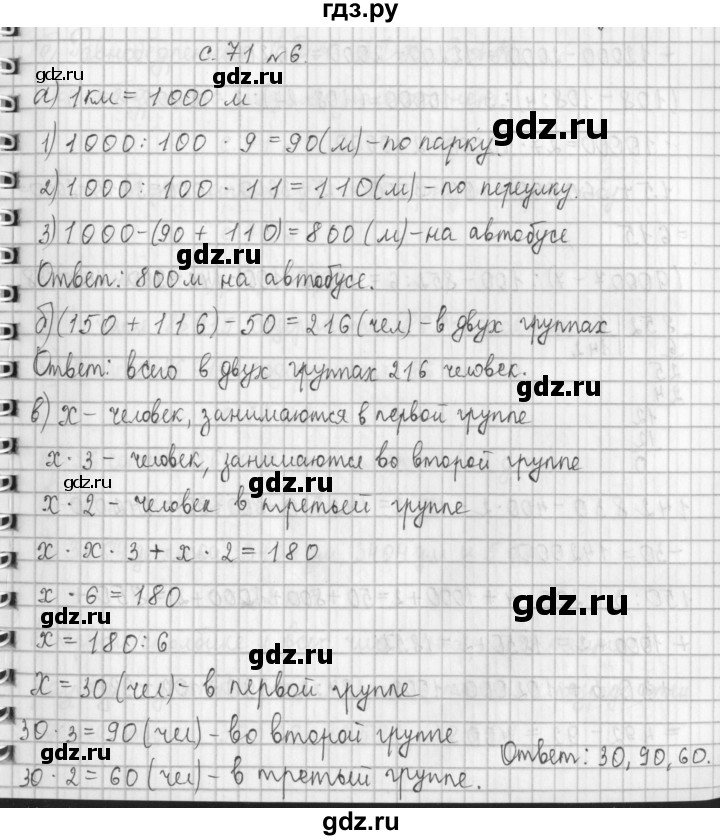 гдз.ру
с. 71 №6.
gdz.ru
а) 1км = 1000 м
gdz.ru
gdz.ru
1) 1000 : 100 · 9 = 90(м) - по парку.
2) 1000 : 100 · 11 = 110(м) - по переулку.
gdz.ru
3) 1000-(90 + 110) = 800 (м) - на автобусе
gdz.ru
Ответ: 800м на автобусе.
б) (150 + 116) - 50 = 216 (чел) - в двух группах
gdz.ru
Ответ: всего в двух группах 216 человек.
gdz.ru
в) х - человек, занимаются в первой группе
х · 3 - человек, занимаются во второй группе
gdz.ru
gdz.ru
х · 2 - человек в третьей группе
х · х · 3 + х · 2 = 180
х · 6 = 180
gdz.ru
gdz.ru
х = 180 : 6
gdz.ru
х = 30 (чел) - в первой группе
30 · 3 = 90 (чел) - во второй группе
gdz.ru
gdz.ru
Ответ: 30, 90, 60.
30 · 2 = 60 (чел) - в третьей группе.
gdz.ru